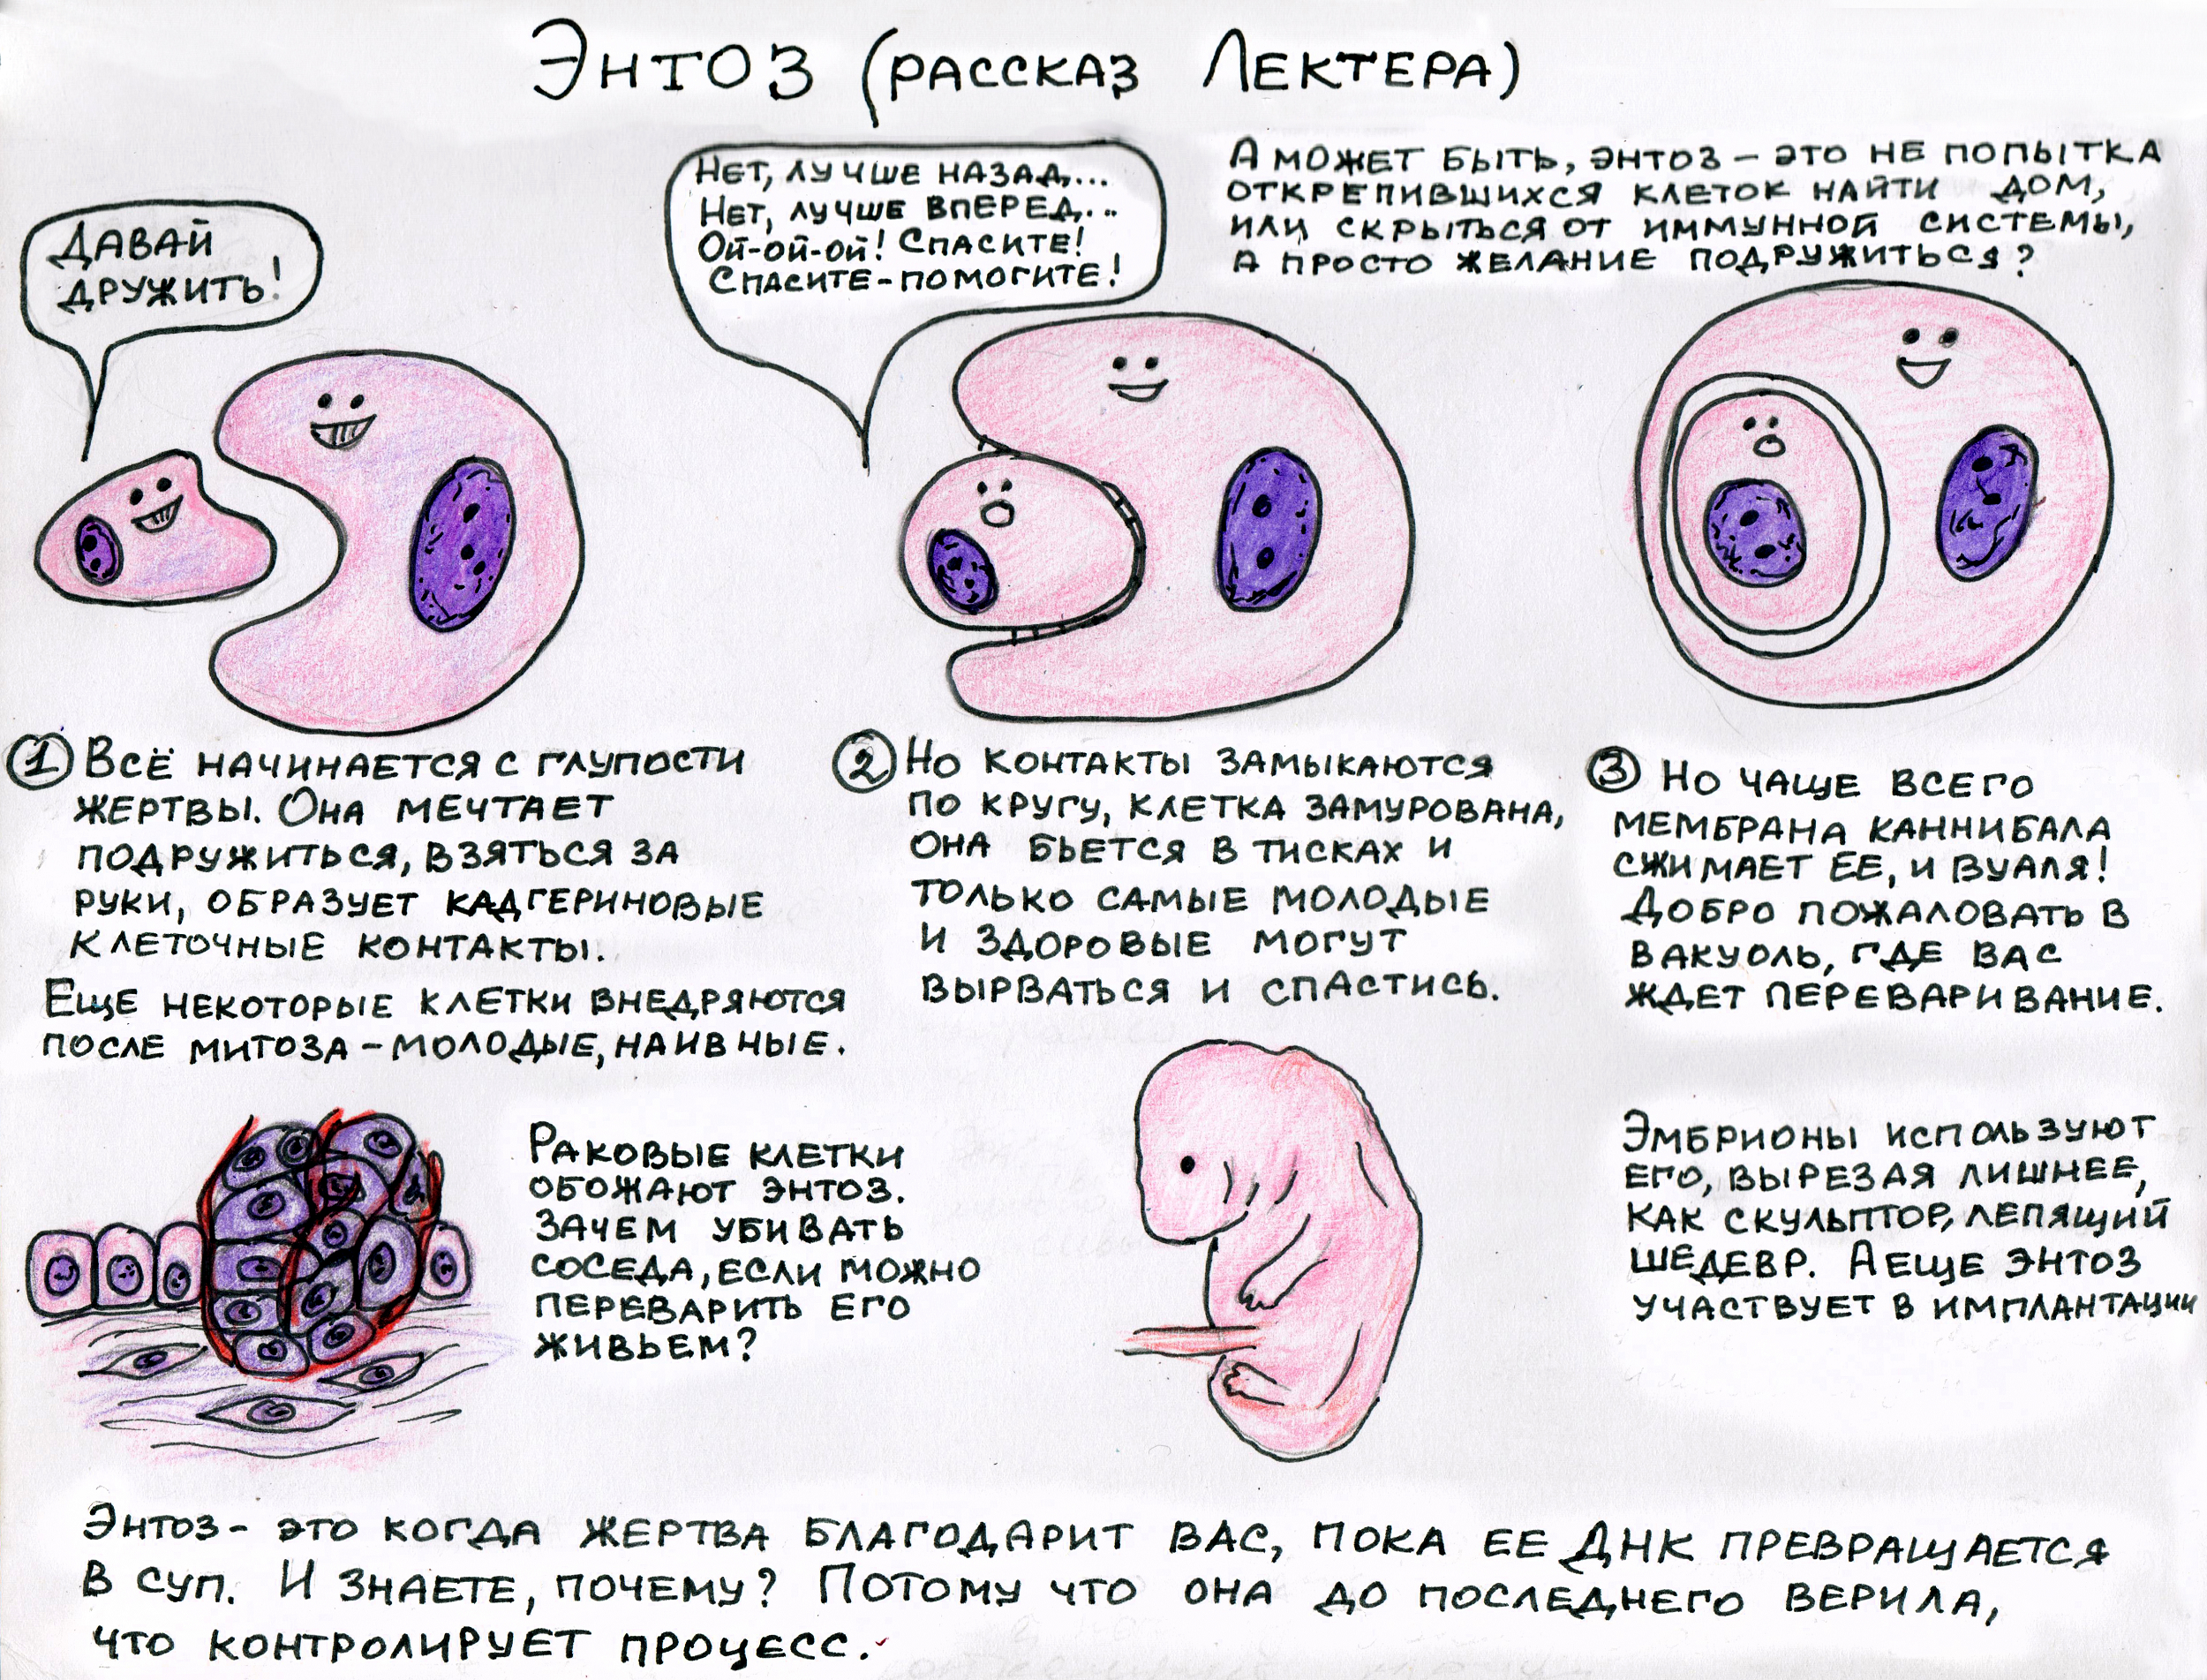 Энтоз (рассказ Лектера)
Давай
дружить!
Нет, лучше назад...
Нет, лучше вперед...
Ой-ой-ой! Спасите!
Спасите-помогите!
А может быть, энтоз – это не попытка
открепившихся клеток найти дом,
или скрыться от иммунной системы,
а просто желание подружиться?
1 Всё начинается с глупости
жертвы. Она мечтает
подружиться, взяться за
руки, образует кадгериновые
клеточные контакты.
Еще некоторые клетки внедряются
после митоза – молодые, наивные.
2 Но контакты замыкаются
по кругу, клетка замурована,
она бьется в тисках и
только самые молодые
и здоровые могут
вырваться и спастись.
3 Но чаще всего
мембрана каннибала
сжимает ее, и вуаля!
Добро пожаловать в
вакуоль, где вас
ждет переваривание.
Раковые клетки
обожают энтоз.
Зачем убивать
соседа, если можно
переварить его
живьем?
Эмбрионы используют
его, вырезая лишнее,
как скульптор, лепящий
шедевр. А еще энтоз
участвует в имплантации
Энтоз - это когда жертва благодарит вас, пока ее ДНК превращается
в суп. И знаете, почему? Потому что она до последнего верила,
что контролирует процесс.